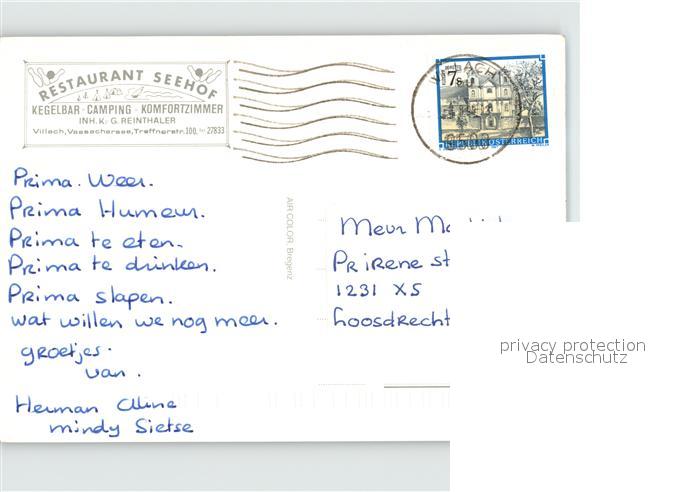 RESTAURANT SEEHOF
KEGELBAR - CAMPING - KOMFORTZIMMER
INH. K. G. REINTHALER
Villach, Vassachersee, Treffnerstr. 100, Tel 27833
VILLACH
7 S
9500
REPUBLIK ÖSTERREICH
Prima. Weer.
Prima Humeur.
Prima te eten.
Prima te drinken.
Prima slapen.
wat willen we nog meer.
groetjes.
van.
Herman Aline
Mindy Sietse
AIR COLOR, Bregenz
Meur
Pr Irene st
1231 XS
Loosdrecht
privacy protection
Datenschutz